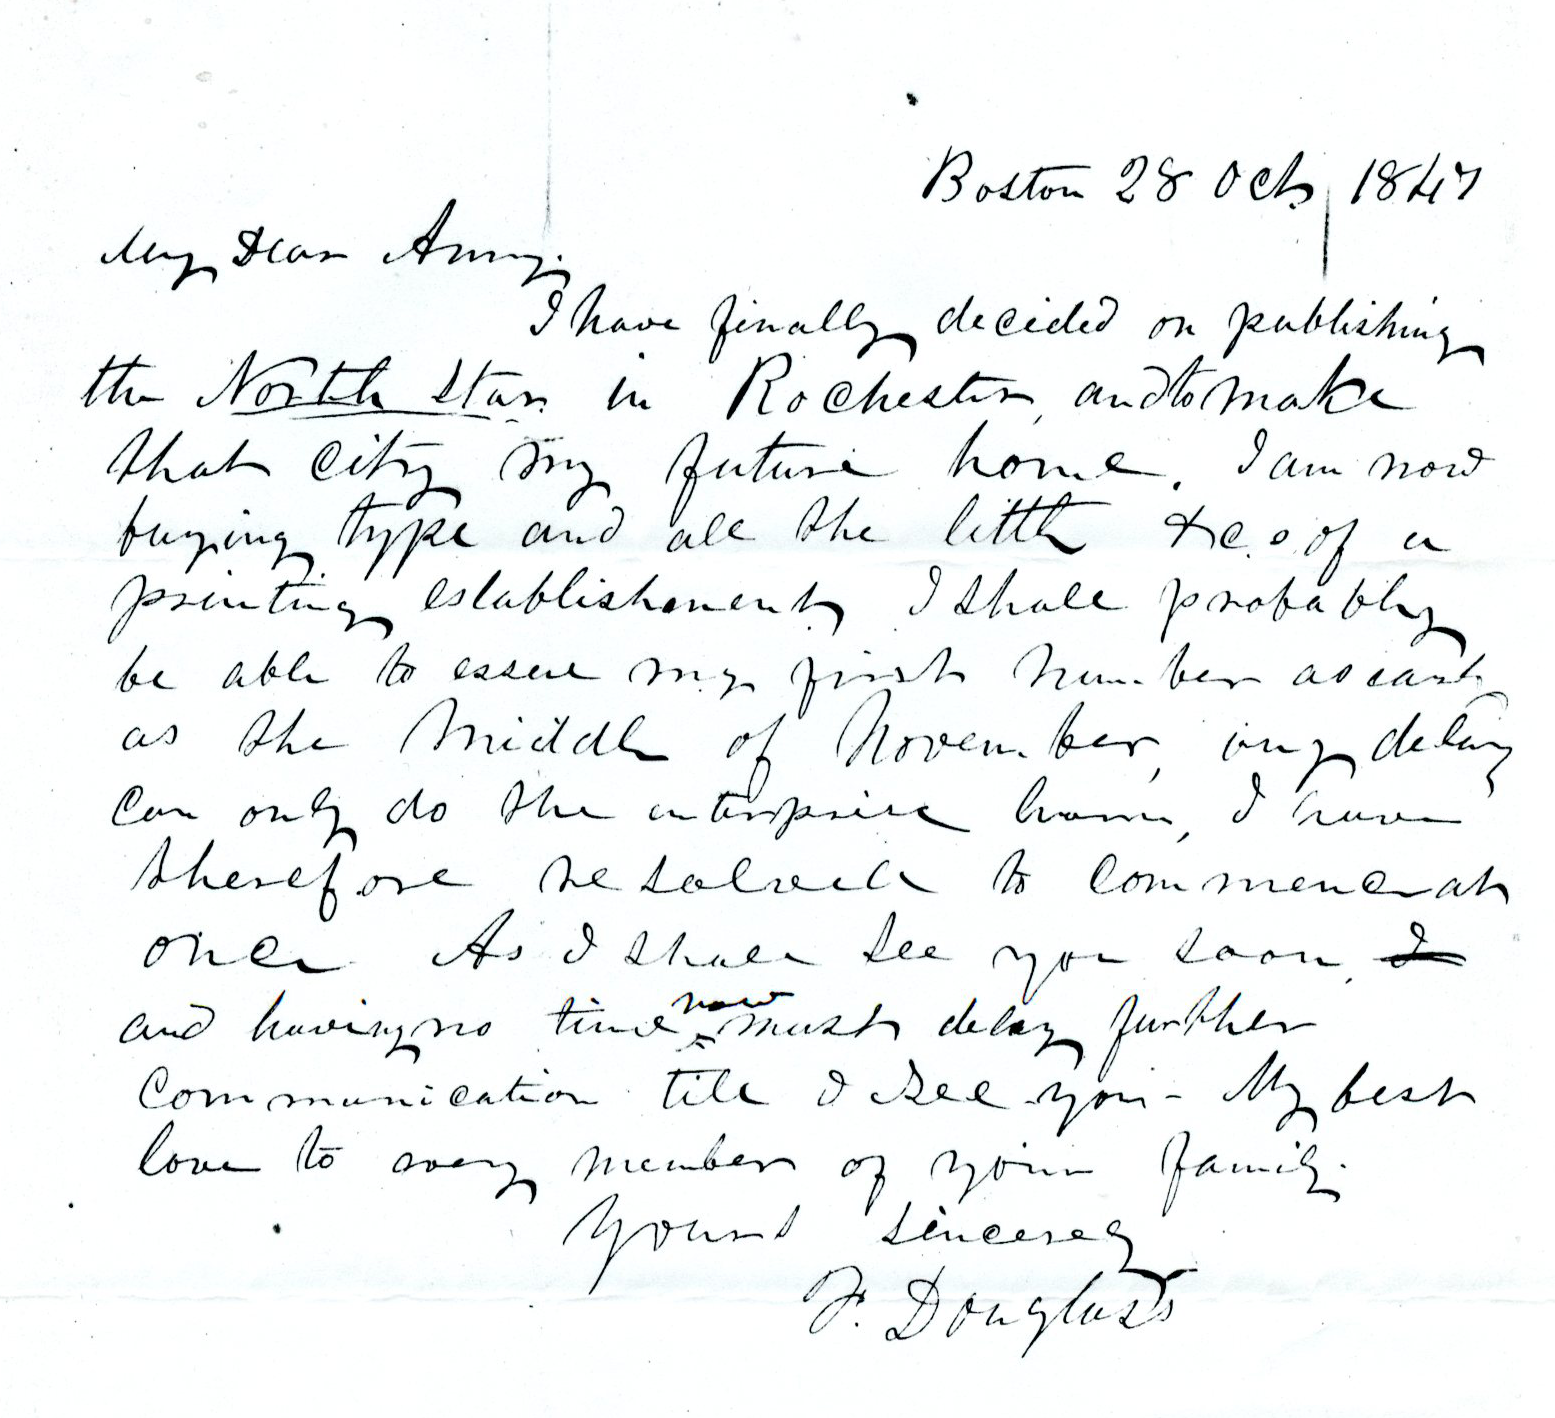 Boston 28 Oct, 1847
My Dear Amy.
I have finally decided on publishing
the North Star in Rochester, and to make
that city my future home. I am now
buying type and all the little &c.s of a
printing establishment, I shall probably
be able to issue my first number as early
as the middle of November, any delay
can only do the enterprise harm, I have
therefore resolved to commence at
once As I shall see you soon, I
and having no time now must delay further
communication till I see you- My best
love to every member of your family.
Yours sincerely
F. Douglass